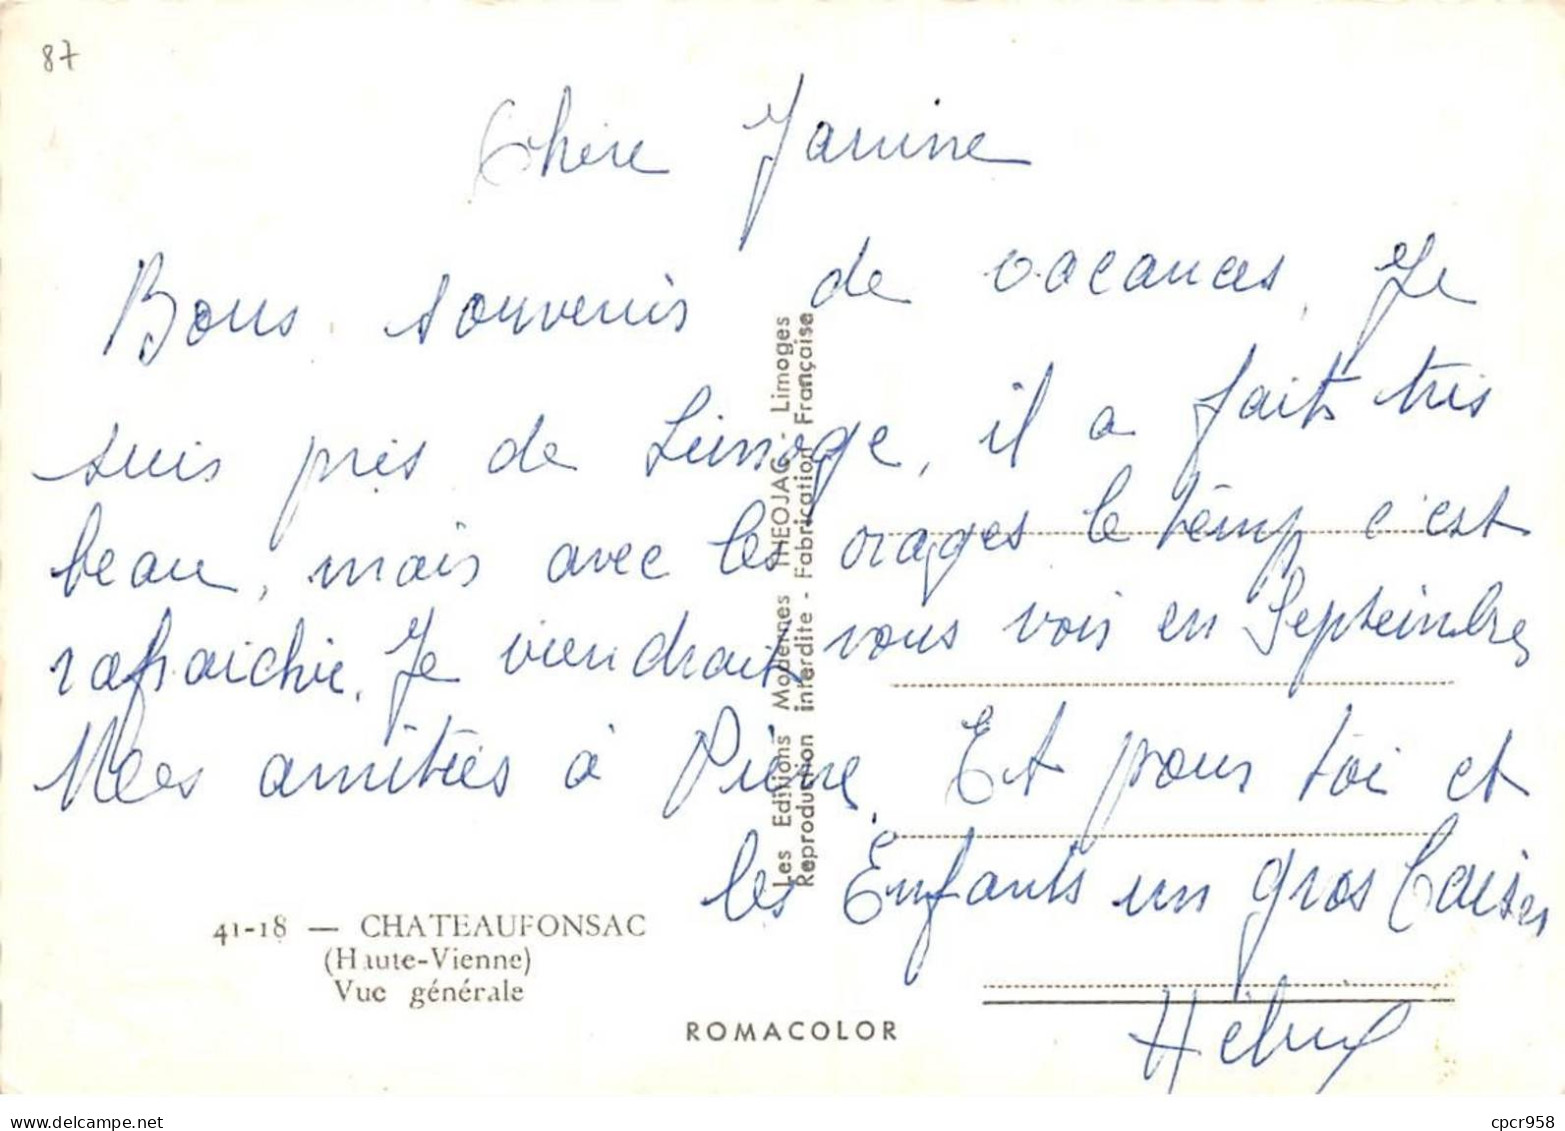 87
Chère Janine
Bons souvenirs de vacances, Je
suis près de Limoge, il a fait très
beau, mais avec les orages le temp c'est
rafraichie. Je viendrait vous voir en Septembre
Mes amitiés à Pierre. Et pour toi et
les Enfants un gros baiser
41-18 — CHATEAUFONSAC
(Haute-Vienne)
Vue générale
ROMACOLOR
Les Editions Modernes THEOJAC - Limoges
Reproduction interdite - Fabrication Française
cpcr958